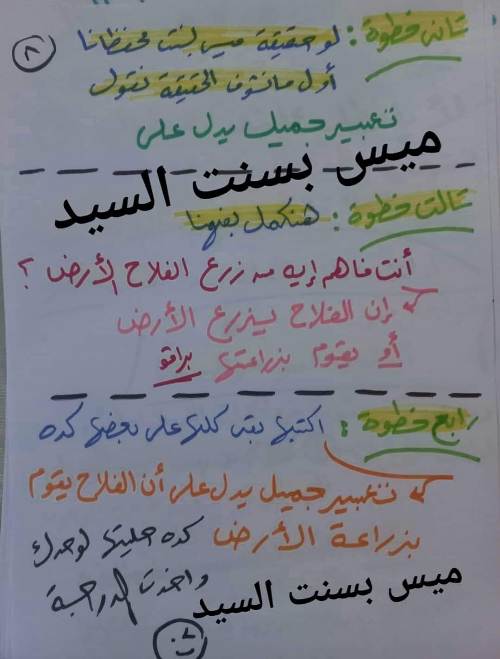 ٨
تانى خطوة : لو حقيقة ميس بسنت محفظانا
أول ما نشوف الحقيقة نقول
تعبير جميل يدل على
ميس بسنت السيد
تالت خطوة : هنكمل بفهمنا
أنت فاهم إيه من زرع الفلاح الأرض ؟
إن الفلاح بيزرع الأرض
أو يقوم بزراعتها برافو
رابع خطوة : اكتبها بقى كلها على بعضها كده
تعبير جميل يدل على أن الفلاح يقوم
بزراعة الأرض كده حليتها لوحدك
واخدت الدرجة
ميس بسنت السيد